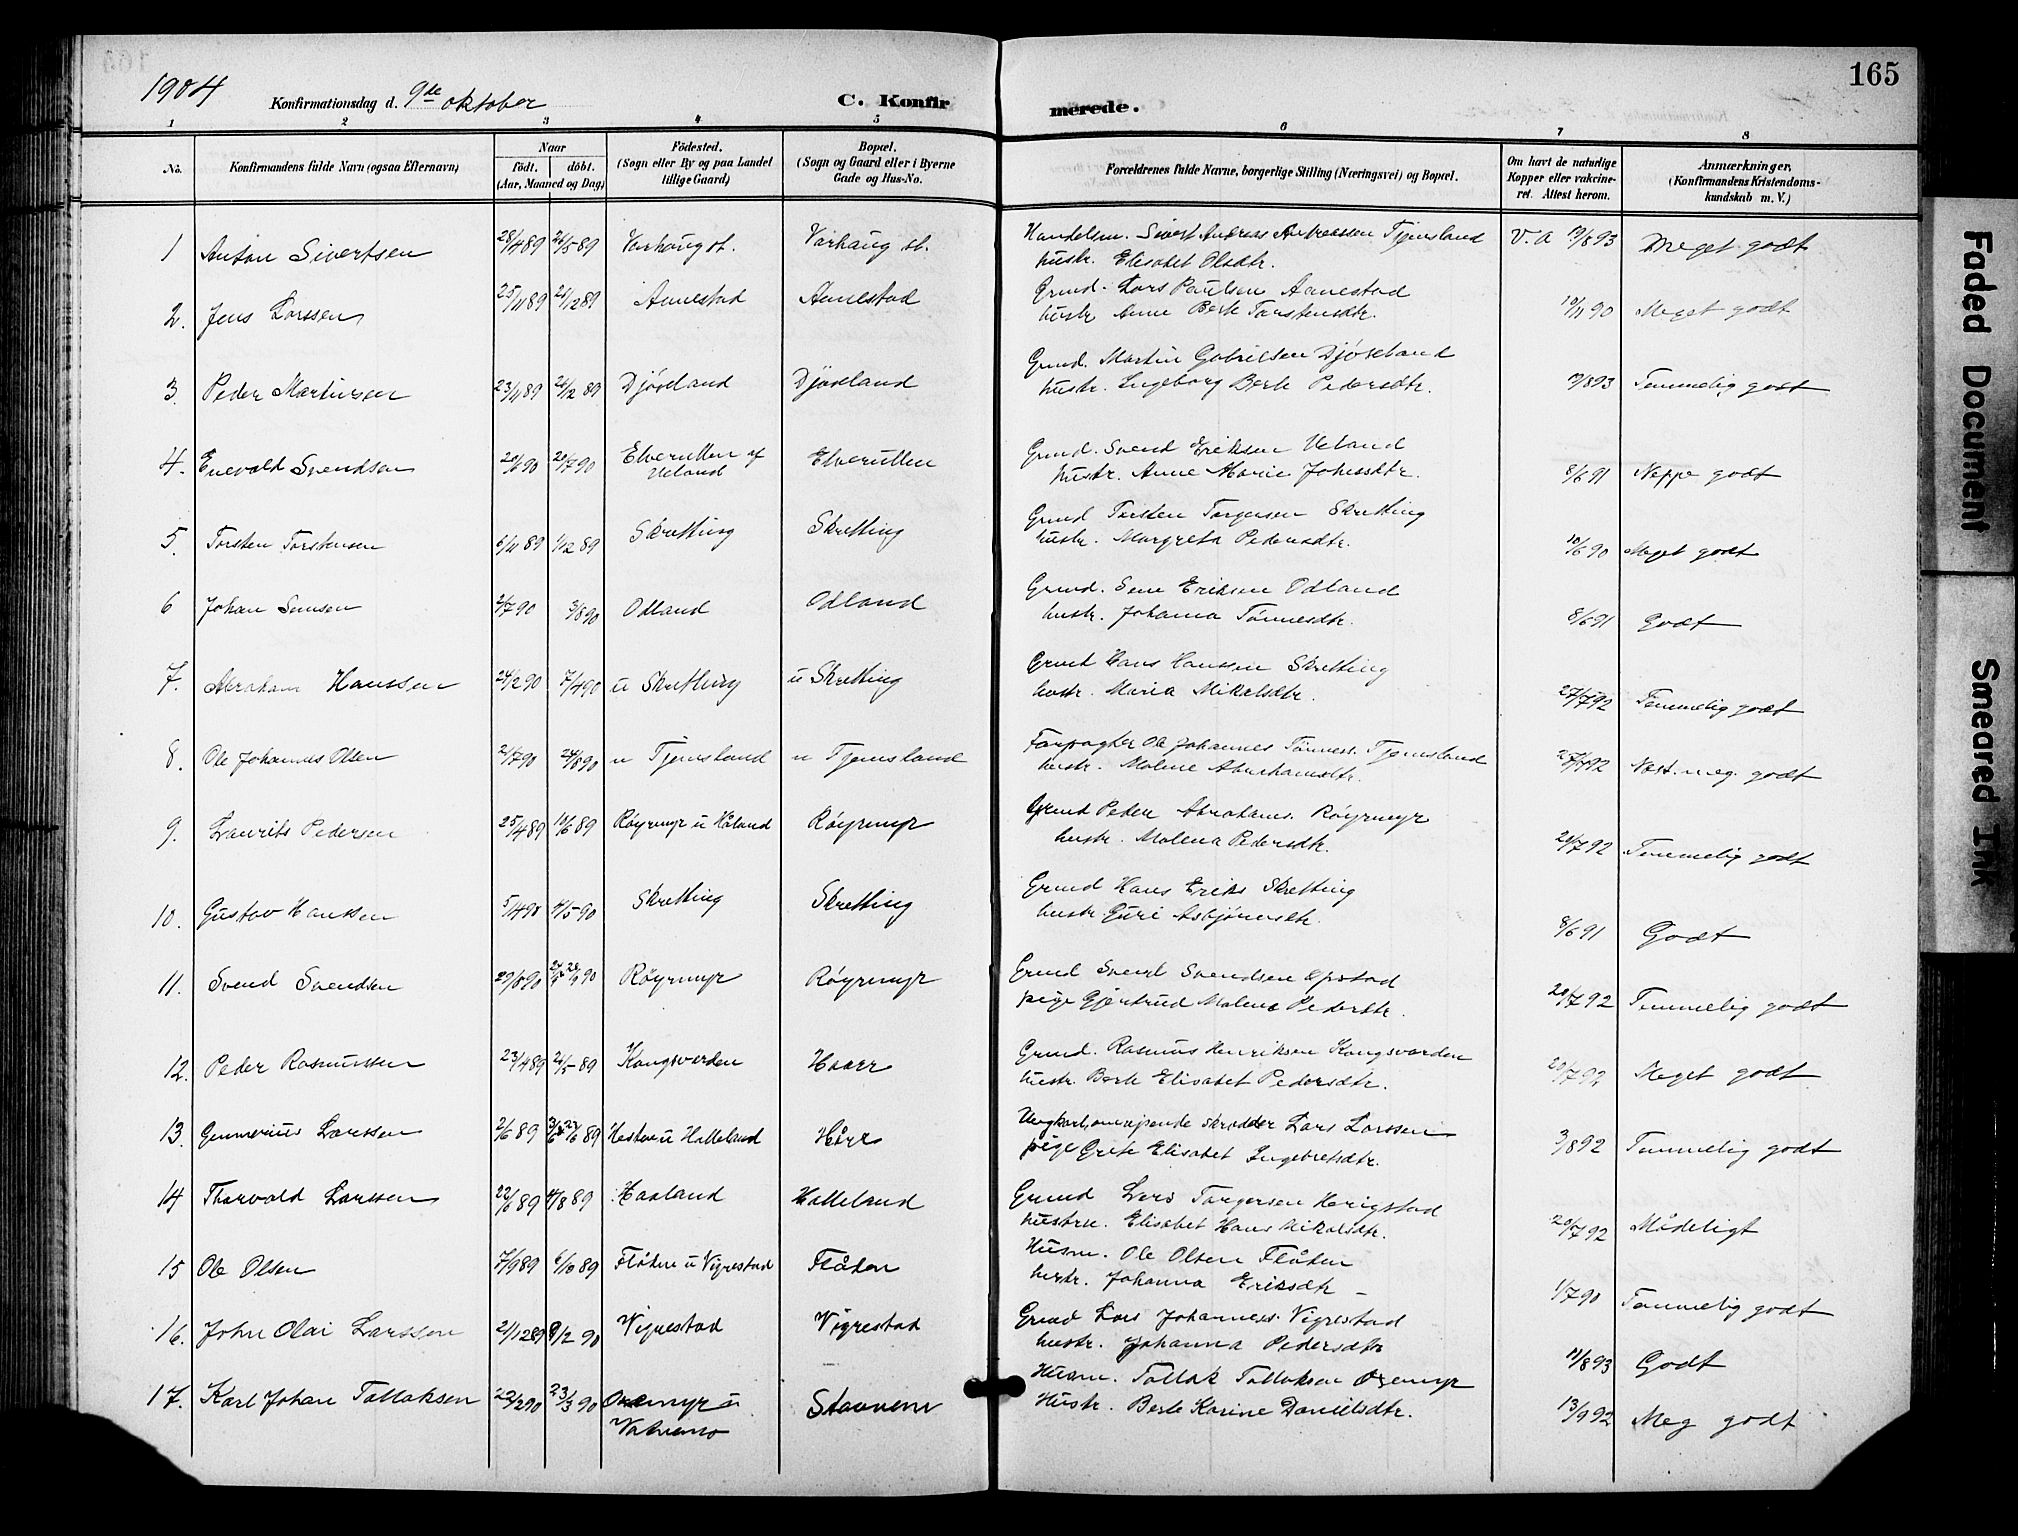 165
1904
Konfirmationsdag d. 9de oktober
C. Konfirmerede.
1 2 3 4 5 6 7 8
No.
Konfirmandens fulde Navn (ogsaa Efternavn)
Naar
födt. döbt.
(Aar, Maaned og Dag)
Födested.
(Sogn eller By og paa Landet
tillige Gaard)
Bopæl.
(Sogn og Gaard eller i Byerne
Gade og Hus-No.
Forældrenes fulde Navne, borgerlige Stilling (Næringsvei) og Bopæl.
Om havt de naturlige
Kopper eller vakcine-
ret. Attest herom.
Anmærkninger,
(Konfirmandens Kristendoms-
kundskab m. V.)
1 Anton Sivertsen 28/4 89 26/5 89 Varhaug st. Varhaug st. Handelsm. Sivert Andreas Andreassen Tjemsland V. A 19/8 93 Meget godt
hustr. Elisabet Olsdtr.
2. Jens Larssen 25/11 89 21/12 89 Aanestad Aanestad Grmd. Lars Paulsen Aanestad 10/11 90 Meget godt
hustr Anne Berte Torstensdtr.
3. Peder Martinsen 23/11 89 26/12 89 Djöseland Djöseland Grmd. Martin Gabrielsen Djöseland 19/8 93 Temmelig godt
hustr. Ingeborg Berte Pedersdtr.
4. Enevald Svendsen 20/6 90 20/7 90 Elverutten af Ueland Elverutten Grmd. Svend Eriksen Ueland 8/6 91 Neppe godt
hustr. Anne Marie Johnsdtr.
5. Torsten Torstensen 6/11 89 1/12 89 Skretting Skretting Grmd Torsten Torgersen Skretting 10/6 90 Meget godt
hustr. Margreta Pedersdtr.
6 Johan Sensen 2/7 90 3/8 90 Odland Odland Grmd. Sem Eriksen Odland 8/6 91 Godt
hustr. Johanna Tönnesdtr.
7. Abraham Hanssen 24/2 90 7/4 90 u Skretting u Skretting Grmd Hans Hanssen Skretting 27/7 92 Temmelig godt
hustr. Maria Mikalsdtr.
8. Ole Johannes Olsen 21/7 90 24/8 90 u Tjemsland u Tjemsland Forpagter Ole Johannes Tönness. Tjemsland 27/7 92 Næst. meg. godt
hustr. Malene Abrahamsdtr.
9. Laurits Pedersen 25/4 89 10/6 89 Röyrmyr u Håland Röyrmyr Grmd Peder Abrahams. Röyrmyr 20/7 92 Temmelig godt
hustr. Malena Pedersdtr.
10. Gustav Hanssen 5/4 90 4/5 90 Skretting Skretting Grmd Hans Eriks Skretting 8/6 91 Godt
hustr. Guri Asbjörnsdtr.
11. Svend Svendsen 29/8 90 28/9 90 Röyrmyr Röyrmyr Grmd Svend Svendsen Opstad 20/7 92 Temmelig godt
pige Gjertrud Malena Pedersdtr.
12. Peder Rasmussen 23/4 89 26/5 89 Kongsvarden Haarr Grmd. Rasmus Henriksen Kongsvarden 20/7 92 Meget godt
hustr. Berte Elisabet Pedersdtr.
13. Gunnerius Larssen 2/6 89 23/6 89 Hesten u Halleland Hårr Ungkarl, omreisende skrædder Lars Larssen 3/8 92 Temmelig godt
pige Grete Elisabet Ingebretsdtr.
14 Thorvald Larssen 22/6 89 4/8 89 Haaland Halleland Grmd Lars Torgersen Herigstad 20/7 92 Mådeligt
hustru. Elisabet Hans Mikalsdtr.
15 Ole Olsen 7/9 89 6/10 89 Flåten u Vigrestad Flåten Husm. Ole Olsen Flåten 1/7 90 Temmelig godt
hustr. Johanna Eriksdtr
16. John Olai Larssen 21/12 89 9/2 90 Vigrestad Vigrestad Grmd Lars Johanness. Vigrestad 11/8 93 Godt
hustr. Johanna Pedersdtr
17. Karl Johan Tollaksen 22/2 90 23/3 90 Oremyr u Vatnemo Stavnem Husm. Tollak Tollaksen Oremyr 13/9 92 Meg godt
Hustr. Berte Karine Danielsdtr.
Faded Document
Smeared Ink